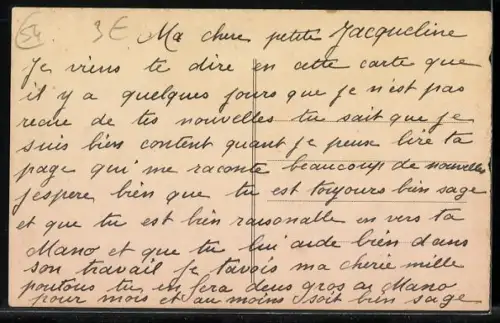 54 3€ Ma chere petite Jacqueline
Je viens te dire en cette carte que
il y a quelques jours que je n'est pas
recue de tes nouvelles tu sait que je
suis bien content quant je peux lire ta
page qui me raconte beaucoup de nouvelles
j'espere bien que tu est toujours bien sage
et que tu est bien raisonalle en vers ta
Mano et que tu lui aide bien dans
son travail je t'avois ma cherie mille
poutous tu en fera deus gros a Mano
pour mois et au moins soit bien sage